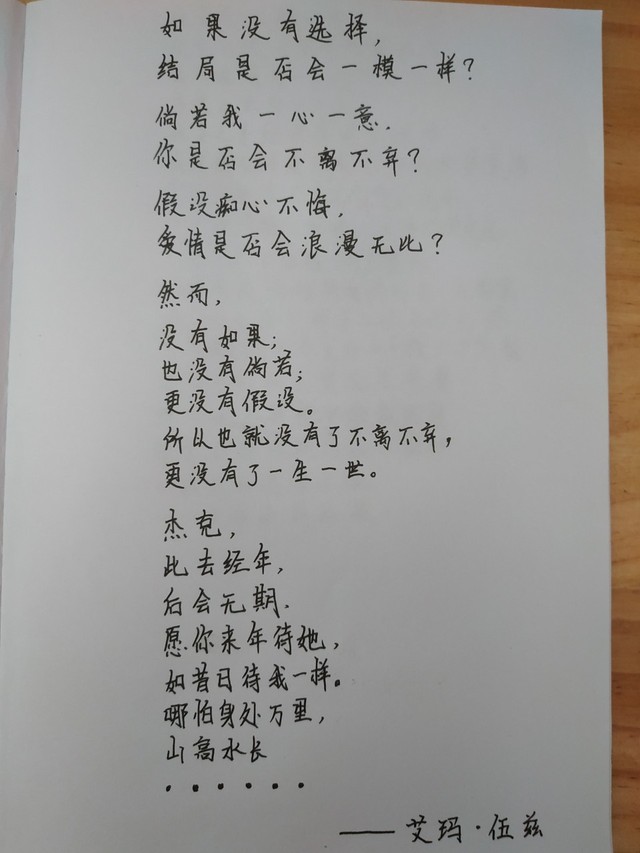 如果没有选择，
结局是否会一模一样？
倘若我一心一意，
你是否会不离不弃？
假设痴心不悔，
爱情是否会浪漫无比？
然而，
没有如果；
也没有倘若；
更没有假设。
所以也就没有了不离不弃，
更没有了一生一世。
杰克，
此去经年，
后会无期．
愿你来年待她，
如昔日待我一样。
哪怕身处万里，
山高水长
······
——艾玛·伍兹